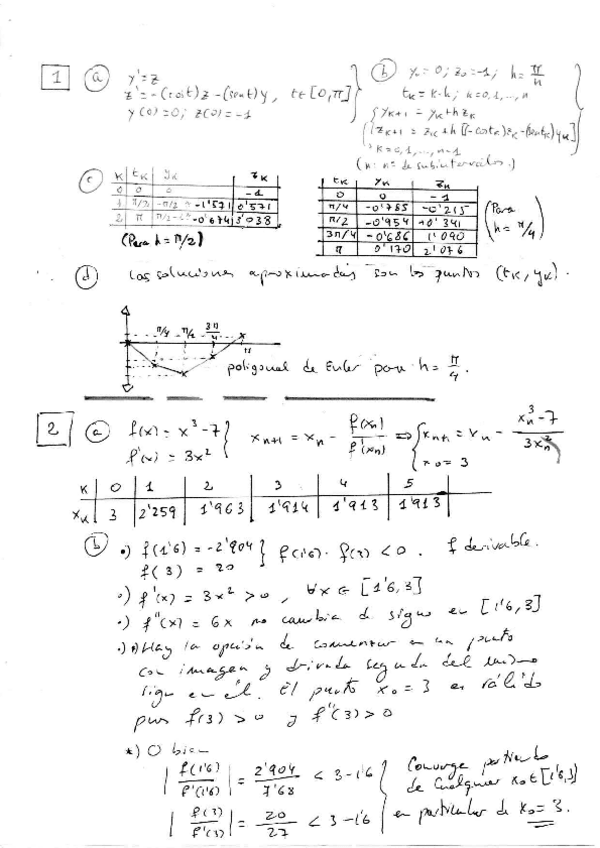 1 a) y' = z
z' = -(cos t)z - (sen t)y, t∈[0,π]
y(0) = 0; z(0) = -1
b) y₀ = 0; z₀ = -1; h = π/n
t_K = K·h; K = 0,1,...,n
{ y_{K+1} = y_K + h z_K
{ z_{K+1} = z_K + h [(-cos t_K) z_K - (sen t_K) y_K]
K = 0,1,...,n-1
(n: nº de subintervalos.)
c) K | t_K | y_K | z_K
0 | 0 | 0 | -1
1 | π/2 | -π/2 = -1'571 | 0'571
2 | π | -0'674 | 3'038
(Para h = π/2)
t_K | y_K | z_K
0 | 0 | -1
π/4 | -0'785 | -0'215
π/2 | -0'954 | +0'341
3π/4 | -0'686 | 1'090
π | 0'170 | 2'076
(Para h = π/4)
d) Las soluciones aproximadas son los puntos (t_K, y_K).
π/4 π/2 3π/4 π
poligonal de Euler para h = π/4.
2 a) f(x) = x³ - 7
f'(x) = 3x²
x_{n+1} = x_n - f(x_n)/f'(x_n) ⇒ { x_{n+1} = x_n - (x_n³ - 7)/(3x_n²)
x₀ = 3
K | 0 | 1 | 2 | 3 | 4 | 5
x_K | 3 | 2'259 | 1'963 | 1'914 | 1'913 | 1'913
b) •) f(1'6) = -2'904
f(3) = 20
} f(1'6)·f(3) < 0. f derivable.
•) f'(x) = 3x² > 0, ∀x ∈ [1'6,3]
•) f''(x) = 6x no cambia de signo en [1'6,3]
•) *) Hay la opción de comenzar en un punto
con imagen y derivada segunda del mismo
signo en él. El punto x₀ = 3 es válido
pues f(3) > 0 y f''(3) > 0
*) O bien
|f(1'6)/f'(1'6)| = 2'904/7'68 < 3 - 1'6
|f(3)/f'(3)| = 20/27 < 3 - 1'6
Converge partiendo
de cualquier x₀ ∈ [1'6,3]
en particular de x₀ = 3.